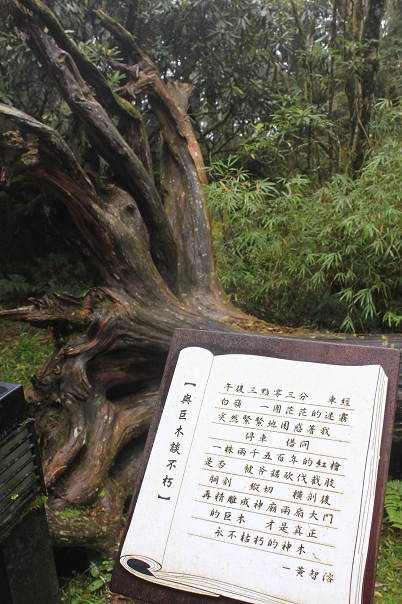 【與巨木談不朽】
午後三點零三分 車經
白嶺 一團茫茫的迷霧
突然緊緊地困惑著我
停車 借問
一株兩千五百年的紅檜
是否 被斧鋸砍伐截肢
胴剖 縱切 橫剖後
再精雕成神廟兩扇大門
的巨木 才是真正
永不枯朽的神木
－黃智溶